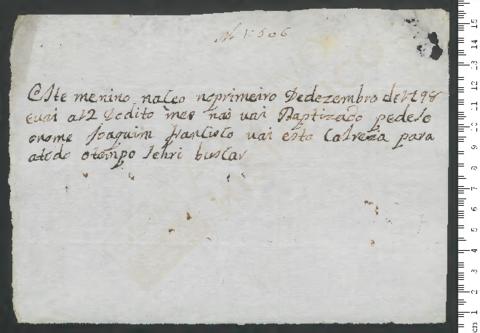 Nº 1606
Este menino naceo noprimeiro Dedezembro de 1798
evai a 12 Dodito mes nao vai Baptizado pedese
onome Joaquim francisco vai esta Clareza para
atodo otempo sehri buscar